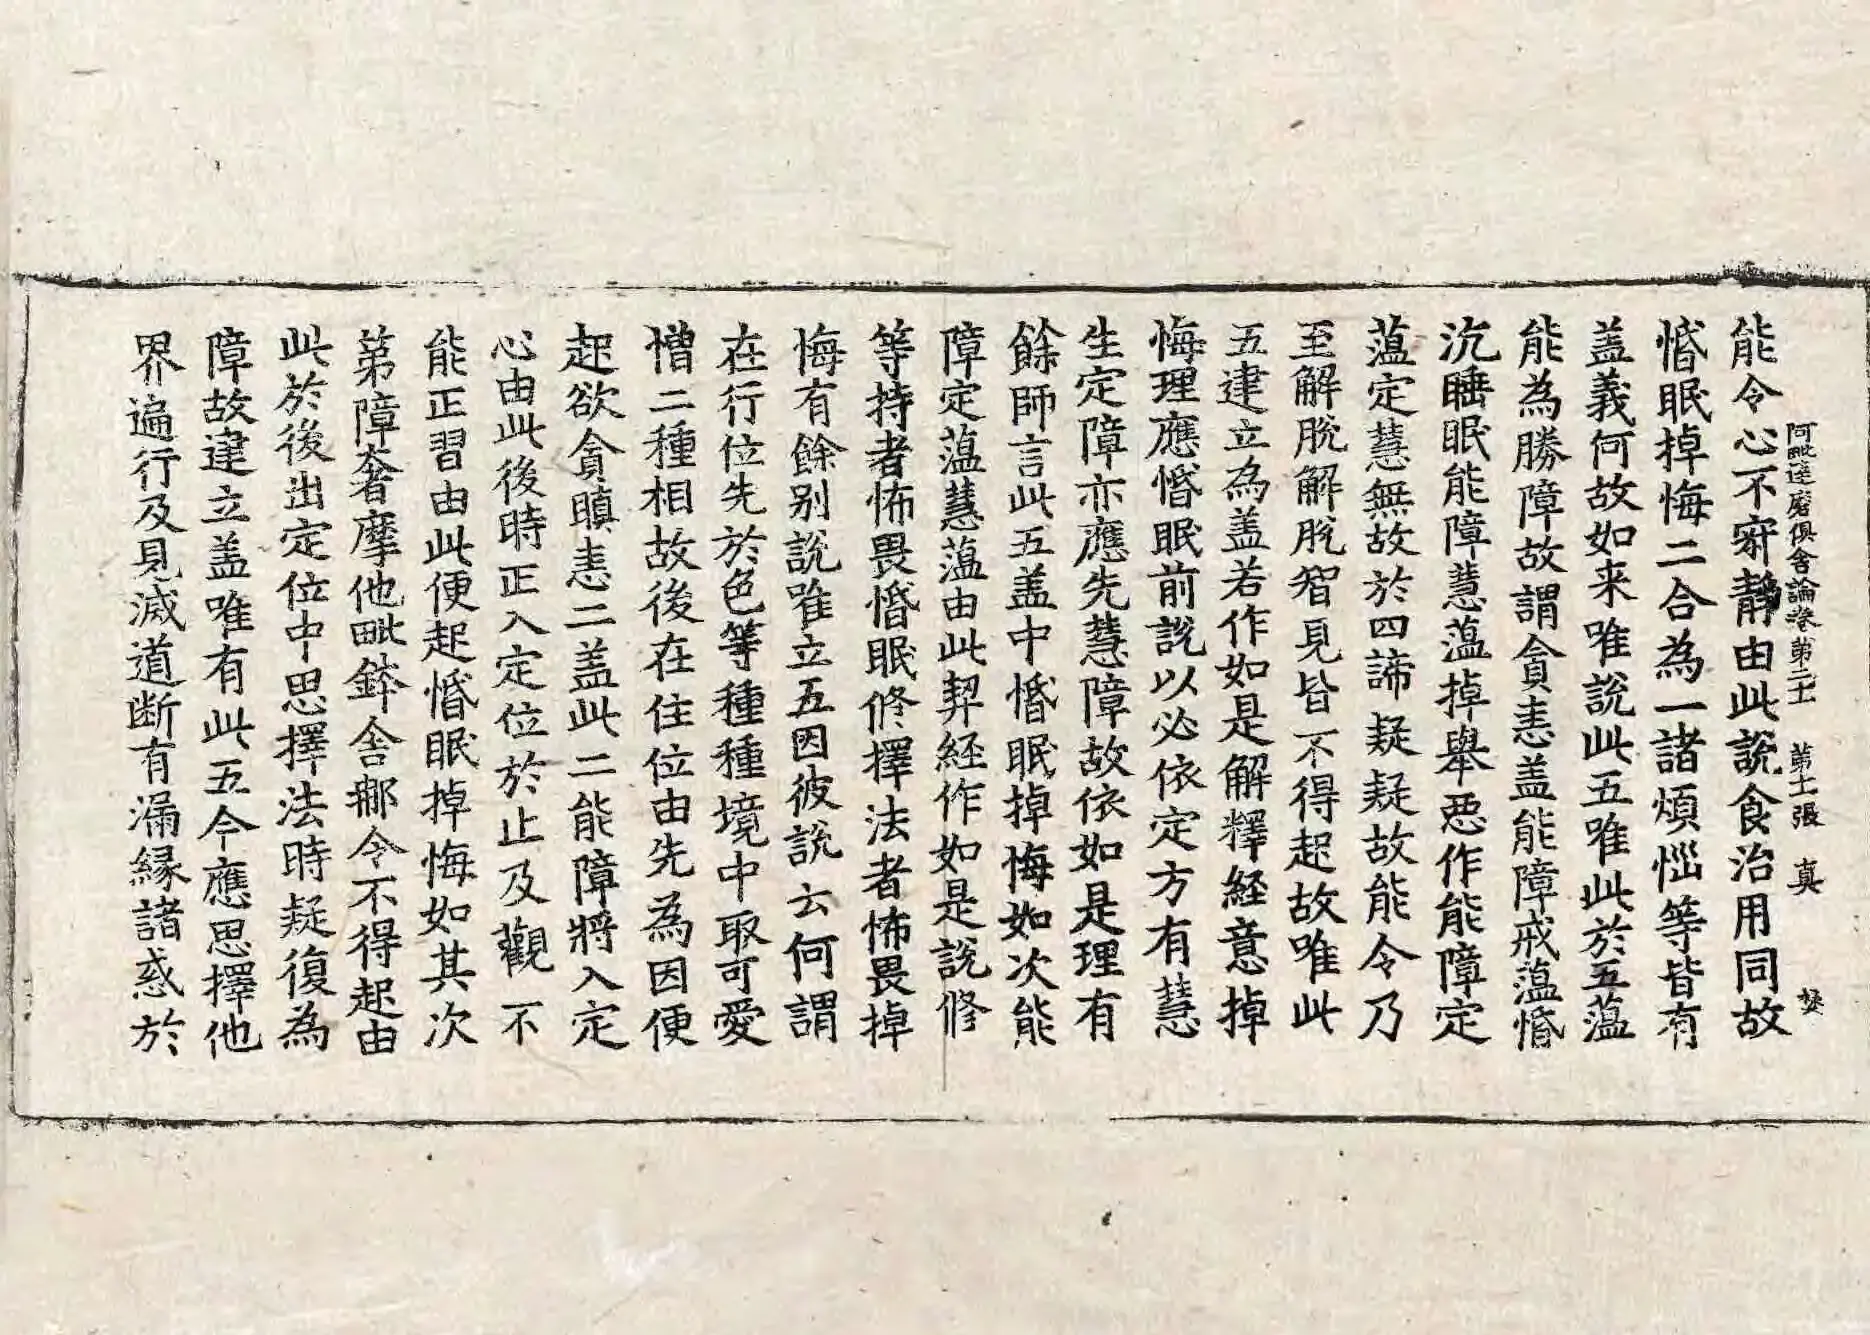 阿毗達磨俱舍論卷第二十一　第十一張　真
能令心不寂靜由此說食治用同故
惛眠掉悔二合為一諸煩惱等皆有
盖義何故如来唯說此五唯此於五蕰
能為勝障故謂貪恚盖能障戒蕰惛
沉睡眠能障慧蕰掉舉惡作能障定
蕰定慧無故於四諦疑疑故能令乃
至解脫解脫智見皆不得起故唯此
五建立為盖若作如是解釋經意掉
悔理應惛眠前說以必依定方有慧
生定障亦應先慧障故依如是理有
餘師言此五盖中惛眠掉悔如次能
障定蕰慧蕰由此契經作如是說修
等持者怖畏惛眠修擇法者怖畏掉
悔有餘別說唯立五因彼說云何謂
在行位先於色等種種境中取可愛
憎二種相故後在住位由先為因便
起欲貪瞋恚二盖此二能障將入定
心由此後時正入定位於止及觀不
能正習由此便起惛眠掉悔如其次
第障奢摩他毗鉢舍那令不得起由
此於後出定位中思擇法時疑復為
障故建立盖唯有此五今應思擇他
界遍行及見滅道斷有漏緣諸惑於